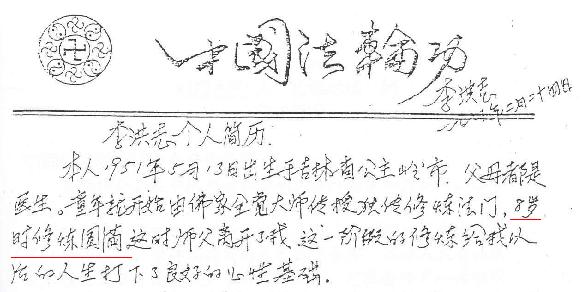 中國法輪功
李洪志
九四年二月二十四日
李洪志个人简历.
本人1951年5月13日出生于吉林省公主岭市. 父母都是
医生。童年就开始由佛家全觉大师传授独传修炼法门, 8岁
时修炼圆满 这时师父离开了我. 这一阶段的修炼给我以
后的人生打下了良好的心性基础.